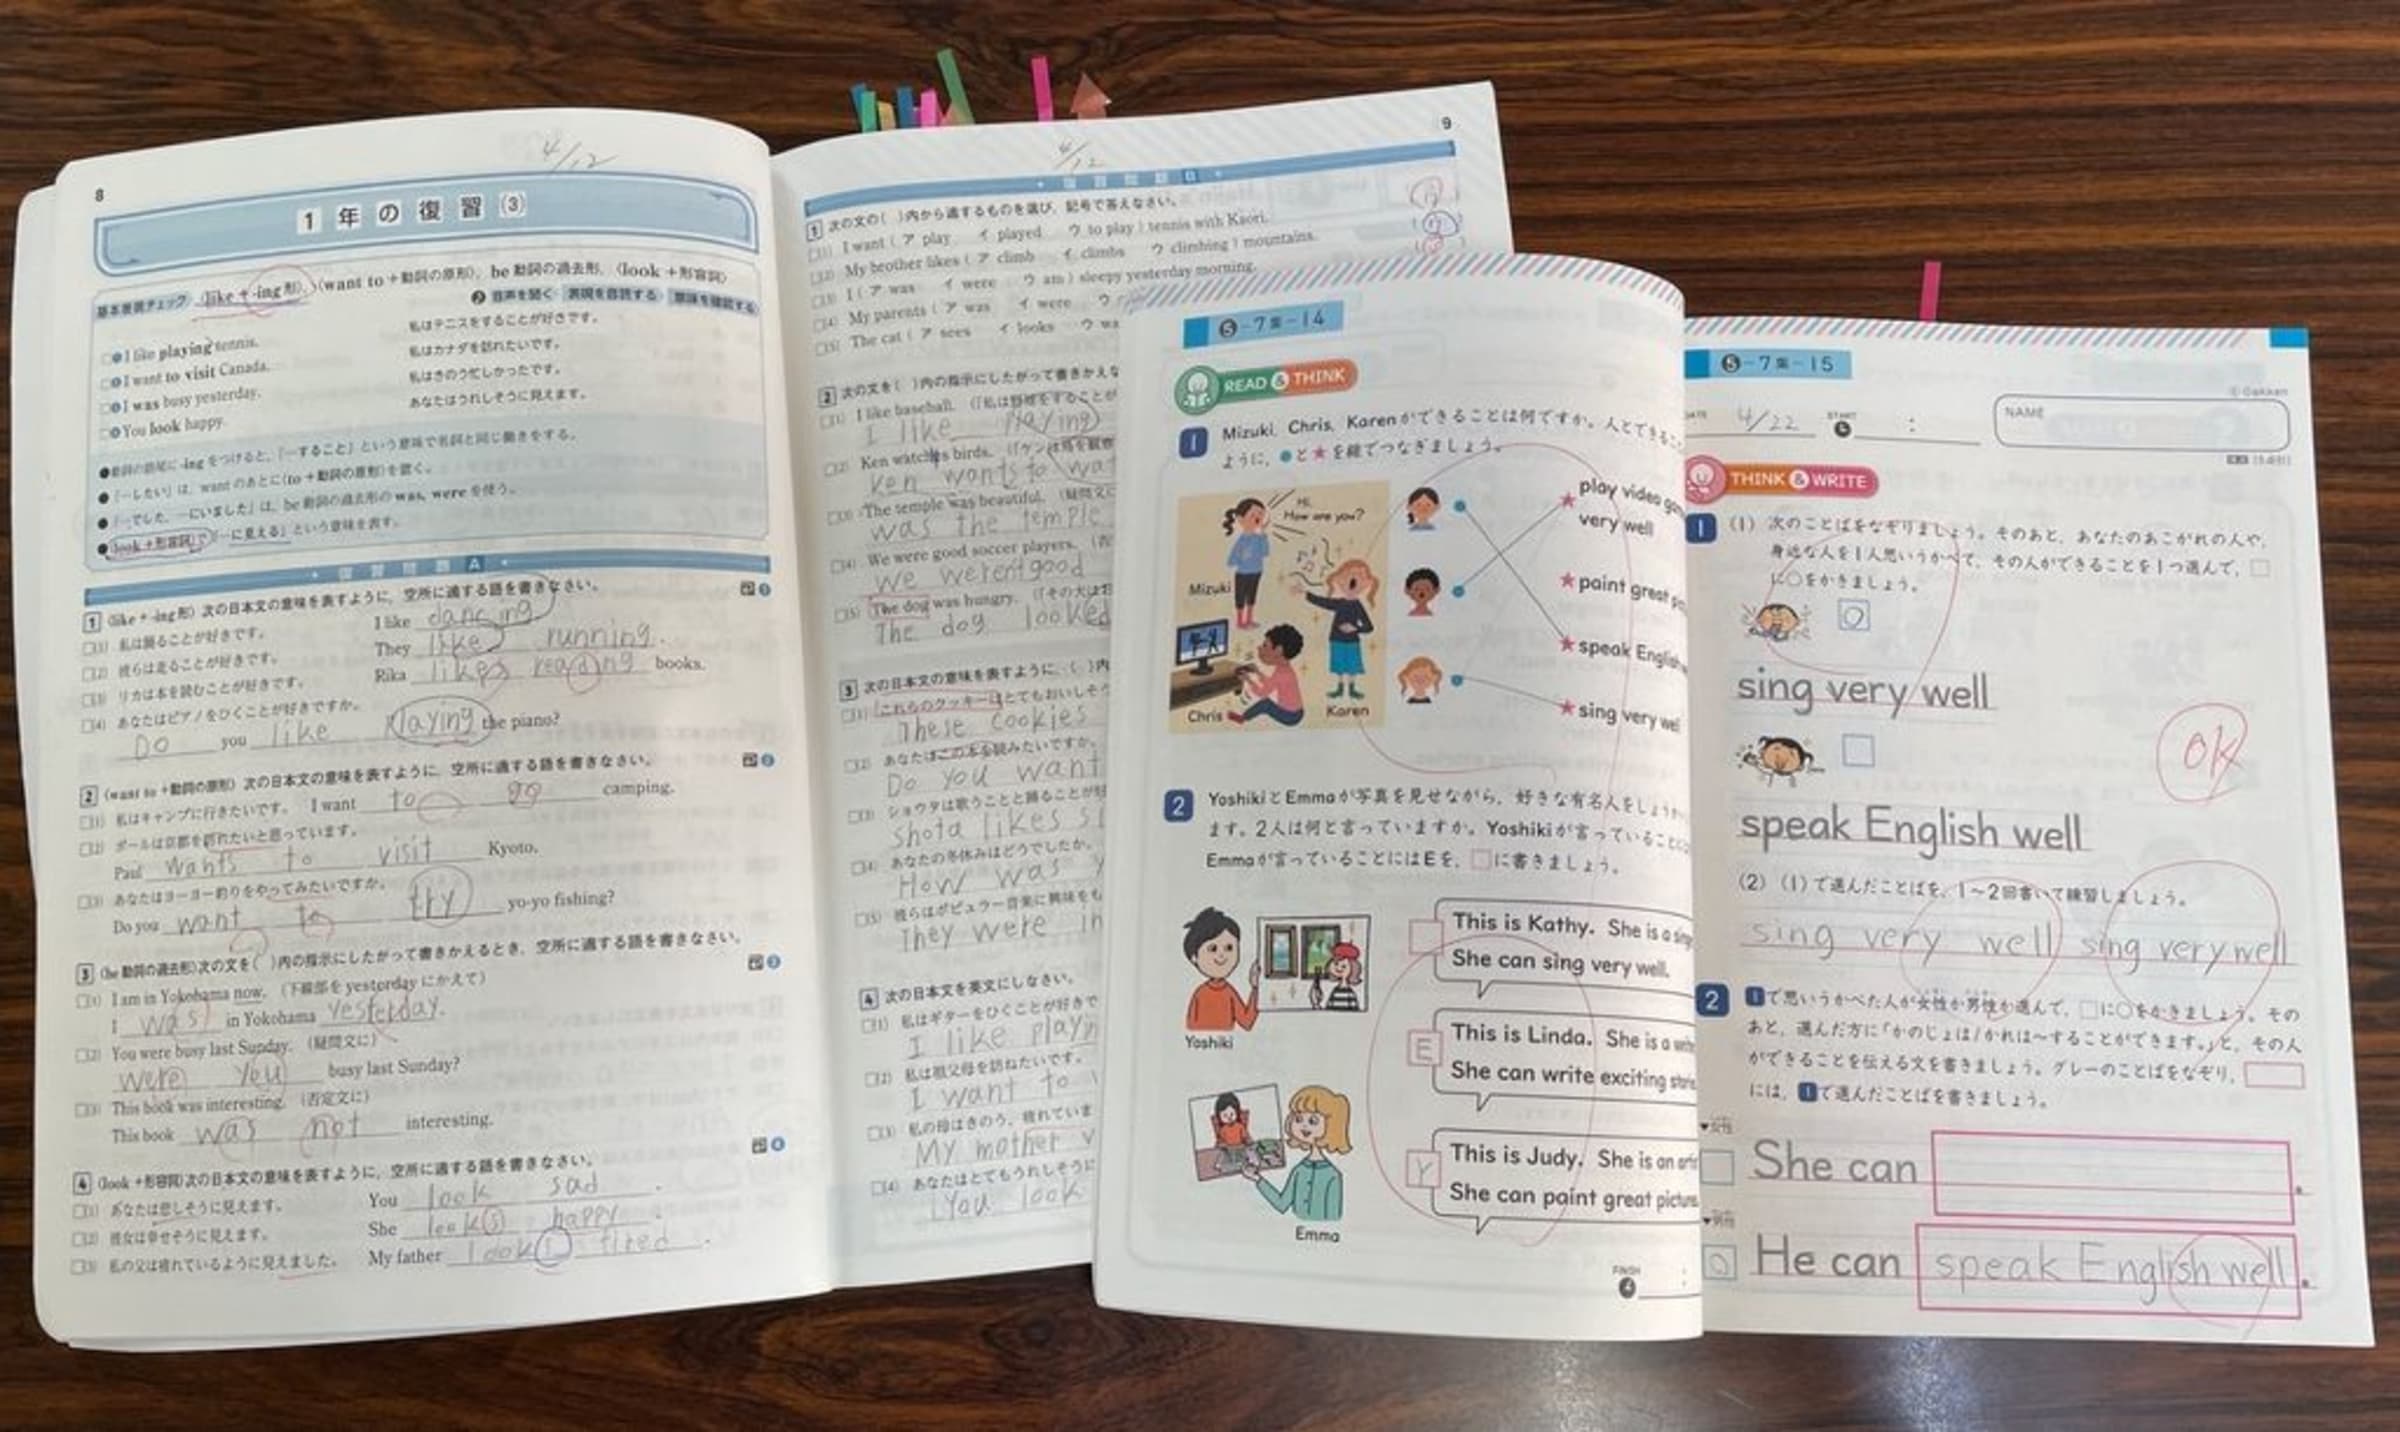 8
4/12
1年の復習(3)
基本表現チェック 〈like+-ing形〉, 〈want to+動詞の原形〉, be動詞の過去形, 〈look+形容詞〉
音声を聞く 表現を音読する 意味を確認する
❶I like playing tennis. 私はテニスをすることが好きです。
I want to visit Canada. 私はカナダを訪れたいです。
I was busy yesterday. 私はきのう忙しかったです。
You look happy. あなたはうれしそうに見えます。
●動詞の語尾に-ingをつけると,「〜すること」という意味で名詞と同じ働きをする。
●「〜したい」は, wantのあとに〈to+動詞の原形〉を続く。
●「〜でした, 〜にいました」は, be動詞の過去形のwas, wereを使う。
●〈look+形容詞〉で「〜に見える」という意味を表す。
復習問題A
1 〈like+-ing形〉次の日本文の意味を表すように, 空所に適する語を書きなさい。
(1) 私は踊ることが好きです。 I like dancing
(2) 彼らは走ることが好きです。 They like running.
(3) リカは本を読むことが好きです。 Rika likes reading books.
(4) あなたはピアノをひくことが好きですか。
Do you like playing the piano?
2 〈want to+動詞の原形〉次の日本文の意味を表すように, 空所に適する語を書きなさい。
(1) 私はキャンプに行きたいです。 I want to go camping.
(2) ポールは京都を訪れたいと思っています。
Paul wants to visit Kyoto.
(3) あなたはヨーヨー釣りをやってみたいですか。
Do you want to try yo-yo fishing?
3 〈be動詞の過去形〉次の文を( )内の指示にしたがって書きかえるとき, 空所に適する語を書きなさい。
(1) I am in Yokohama now. (下線部をyesterdayにかえて)
I was in Yokohama yesterday.
(2) You were busy last Sunday. (疑問文に)
Were you busy last Sunday?
(3) This book was interesting. (否定文に)
This book was not interesting.
4 〈look+形容詞〉次の日本文の意味を表すように, 空所に適する語を書きなさい。
(1) あなたは悲しそうに見えます。 You look sad.
(2) 彼女は幸せそうに見えます。 She looks happy.
(3) 私の父は疲れているように見えました。 My father tired.
9
4/12
復習問題B
1 次の文の( )内から適するものを選び, 記号で答えなさい。
(1) I want ( ア play イ played ウ to play ) tennis with Kaori.
(2) My brother likes ( ア climb イ climbs ウ climbing ) mountains.
(3) I ( ア was イ were ウ am ) sleepy yesterday morning.
(4) My parents ( ア was イ were ウ
(5) The cat ( ア sees イ looks ウ wa
2 次の文を( )内の指示にしたがって書きかえな
(1) I like baseball. (「私は野球をすることが
I like playing
(2) Ken watches birds. (「ケンは鳥を観察
Ken wants to wat
(3) The temple was beautiful. (疑問文に
was the temple
(4) We were good soccer players. (否
We weren't good
(5) The dog was hungry. (「その犬はお
The dog looked
3 次の日本文の意味を表すように, ( )内
(1) これらのクッキーはとてもおいしそう
These cookies
(2) あなたはこの本を読みたいですか。
Do you want
(3) ショウタは歌うことと踊ることが好
Shota likes si
(4) あなたの冬休みはどうでしたか。
How was y
(5) 彼らはポピュラー音楽に興味をも
They were in
4 次の日本文を英文にしなさい。
(1) 私はギターをひくことが好きで
I like playin
(2) 私は祖父母を訪ねたいです。
I want to
(3) 私の母はきのう, 疲れていま
My mother
(4) あなたはとてもうれしそうに
You look
❺-7集-14
READ & THINK
1 Mizuki, Chris, Karenができることは何ですか。人とできること
ように, ●と★を線でつなぎましょう。
Hi.
How are you?
Mizuki
Chris
Karen
★play video gam
very well
★paint great p
★speak English
★sing very wel
2 YoshikiとEmmaが写真を見せながら, 好きな有名人をしょうか
ます。2人は何と言っていますか。Yoshikiが言っていることに
Emmaが言っていることにはEを, □に書きましょう。
Yoshiki
This is Kathy. She is a sing
She can sing very well.
E This is Linda. She is a write
She can write exciting storie
Y This is Judy. She is an arti
She can paint great picture
Emma
FINISH
❺-7集-15
©Gakken
DATE 4/22 START : NAME
THINK & WRITE
1 (1) 次のことばをなぞりましょう。そのあと, あなたのあこがれの人や,
身近な人を1人思いうかべて, その人ができることを1つ選んで, □
に○をかきましょう。
○
sing very well
OK
speak English well
(2) (1)で選んだことばを, 1〜2回書いて練習しましょう。
sing very well sing very well
2 1で思いうかべた人が女性か男性か選んで, □に○をかきましょう。その
あと, 選んだ方に「かのじょは/かれは〜することができます。」と, その人
ができることを伝える文を書きましょう。グレーのことばをなぞり,
には, 1で選んだことばを書きましょう。
▼女性
She can .
▼男性
○ He can speak English well.